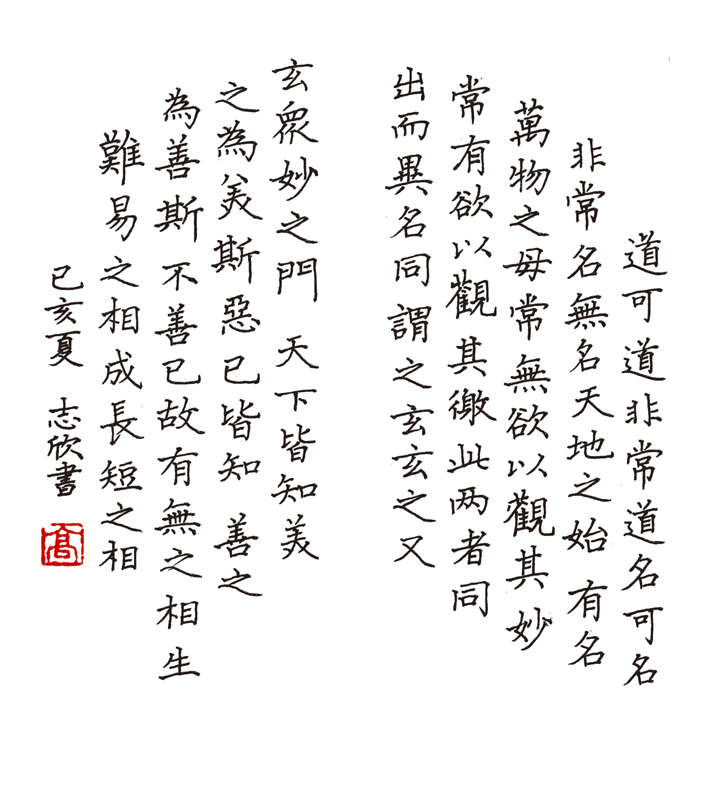 道可道非常道名可名
非常名無名天地之始 有名
萬物之母常無欲以觀其妙
常有欲以觀其徼此两者同
出而異名同謂之玄玄之又
玄眾妙之門 天下皆知美
之為美斯惡已皆知 善之
為善斯不善已故有無之相生
難易之相成長短之相
已亥夏 志欣書
高